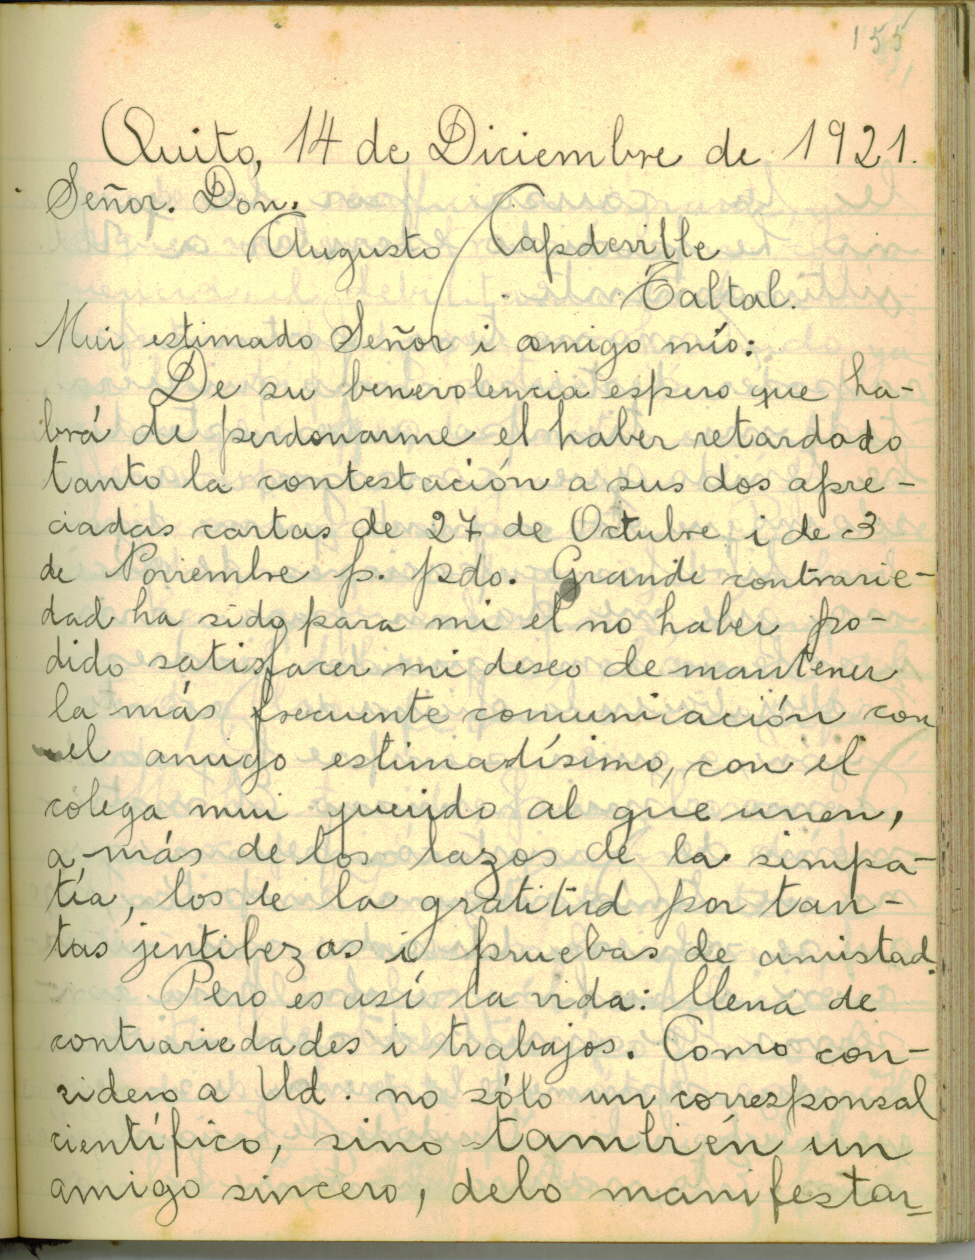 155
Quito, 14 de Diciembre de 1921.
Señor. Don.
Augusto Capdeville
Taltal.
Mui estimado Señor i amigo mío:
De su benevolencia espero que ha-
brá de perdonarme el haber retardado
tanto la contestación a sus dos apre-
ciadas cartas de 27 de Octubre i de 3
de Noviembre p. pdo. Grande contrarie-
dad ha sido para mi el no haber po-
dido satisfacer mi deseo de mantener
la más frecuente comunicación con
el amigo estimadísimo, con el
colega mui querido al que unen,
a más de los lazos de la simpa-
tía, los de la gratitud por tan-
tas jentilezas i pruebas de amistad.
Pero es así la vida: llena de
contrariedades i trabajos. Como con-
sidero a Ud. no sólo un corresponsal
científico, sino también un
amigo sincero, debo manifestar-